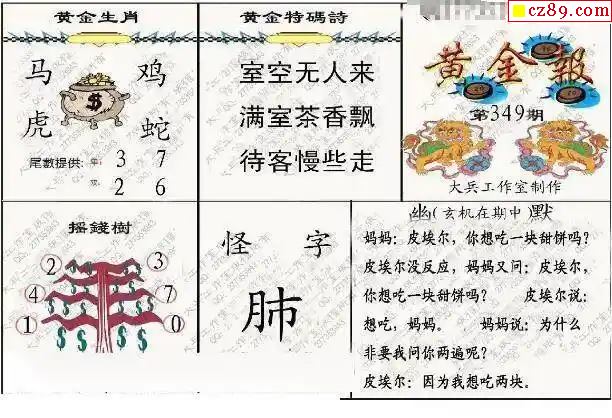 cz89.com
黄金生肖
马 鸡
虎 蛇
$
尾數提供: 单: 3 7
双: 2 6
黄金特碼詩
室空无人来
满室茶香飘
待客慢些走
黄金報
第349期
大兵工作室制作
摇錢樹
2 3
4 7
1 0
$ $ $ $ $ $
怪 字
肺
幽(玄机在期中)默
妈妈:皮埃尔,你想吃一块甜饼吗?
皮埃尔没反应,妈妈又问:皮埃尔,
你想吃一块甜饼吗? 皮埃尔说:
想吃,妈妈。 妈妈说:为什么
非要我问你两遍呢?
皮埃尔:因为我想吃两块。